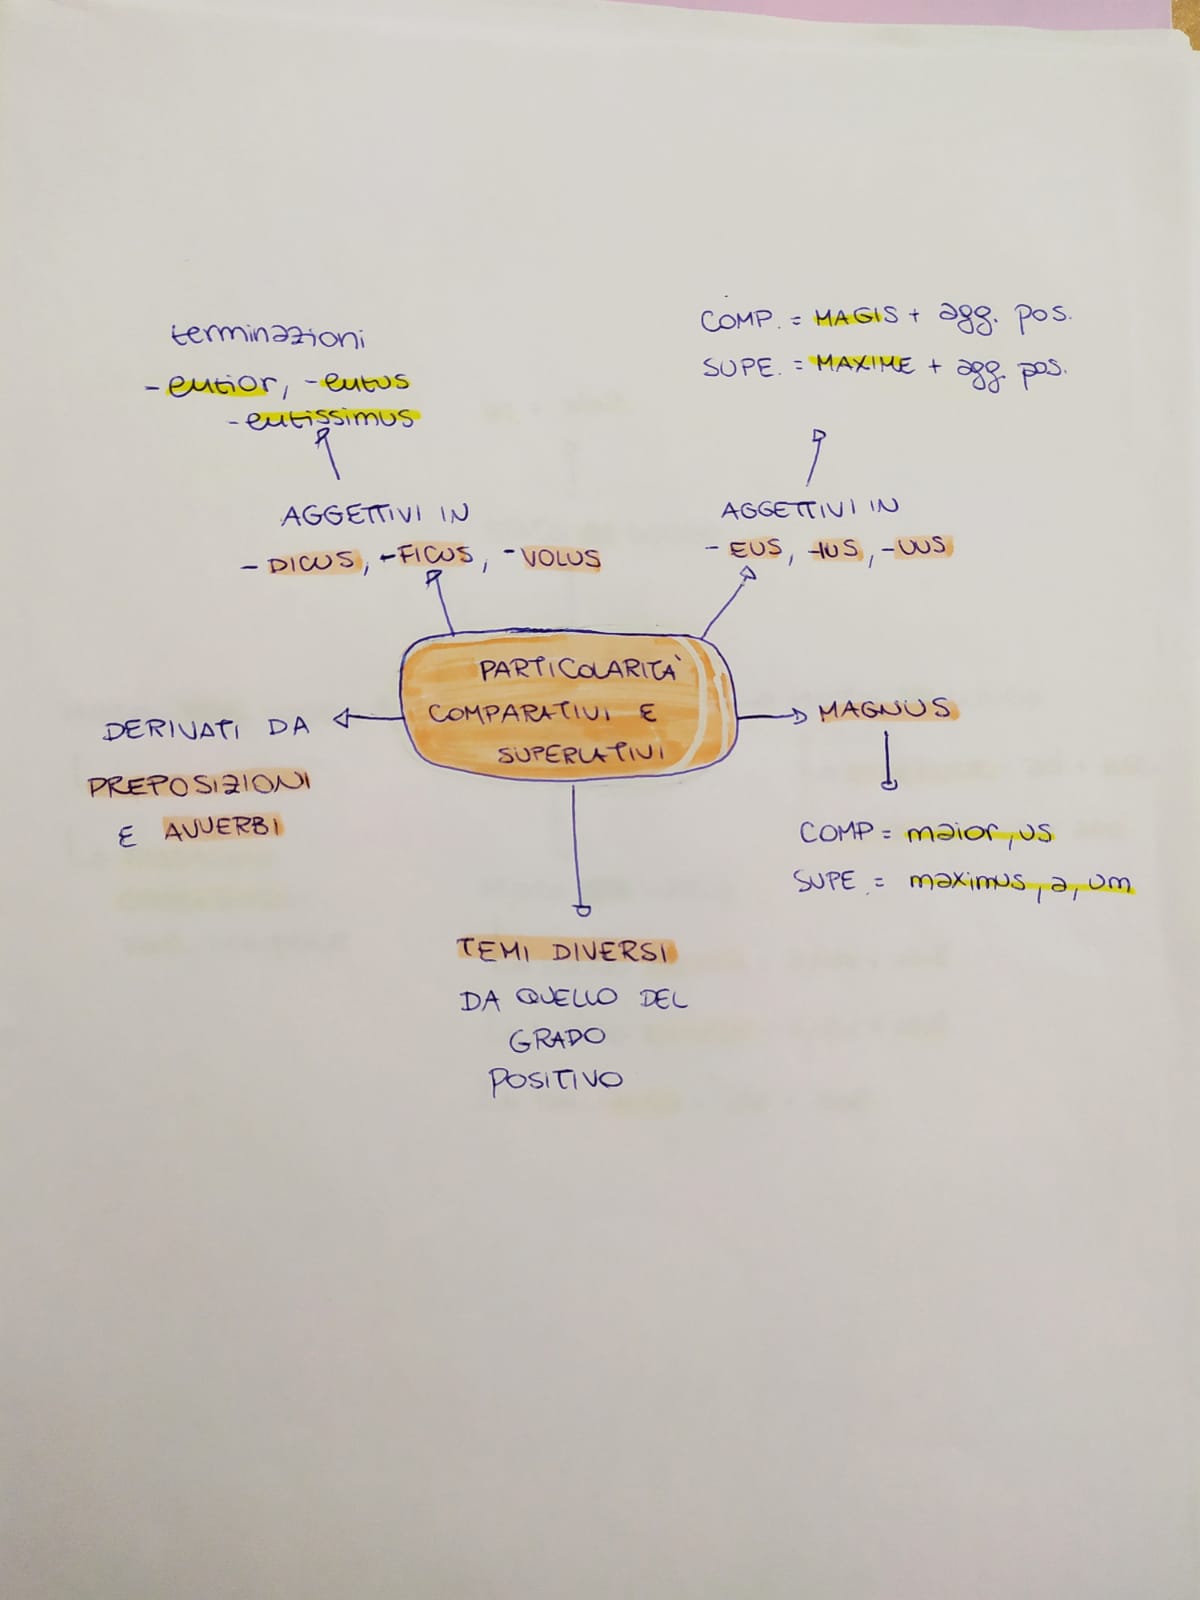 terminazioni
- entior, - entus
- entissimus
AGGETTIVI IN
- DICUS, - FICUS, - VOLUS
COMP. = MAGIS + agg. pos.
SUPE. = MAXIME + agg. pos.
AGGETTIVI IN
- EUS, -IUS, - UUS
PARTICOLARITÀ
COMPARATIVI E
SUPERLATIVI
DERIVATI DA
PREPOSIZIONI
E AVVERBI
MAGNUS
COMP = maior, us
SUPE. = maximus, a, um
TEMI DIVERSI
DA QUELLO DEL
GRADO
POSITIVO